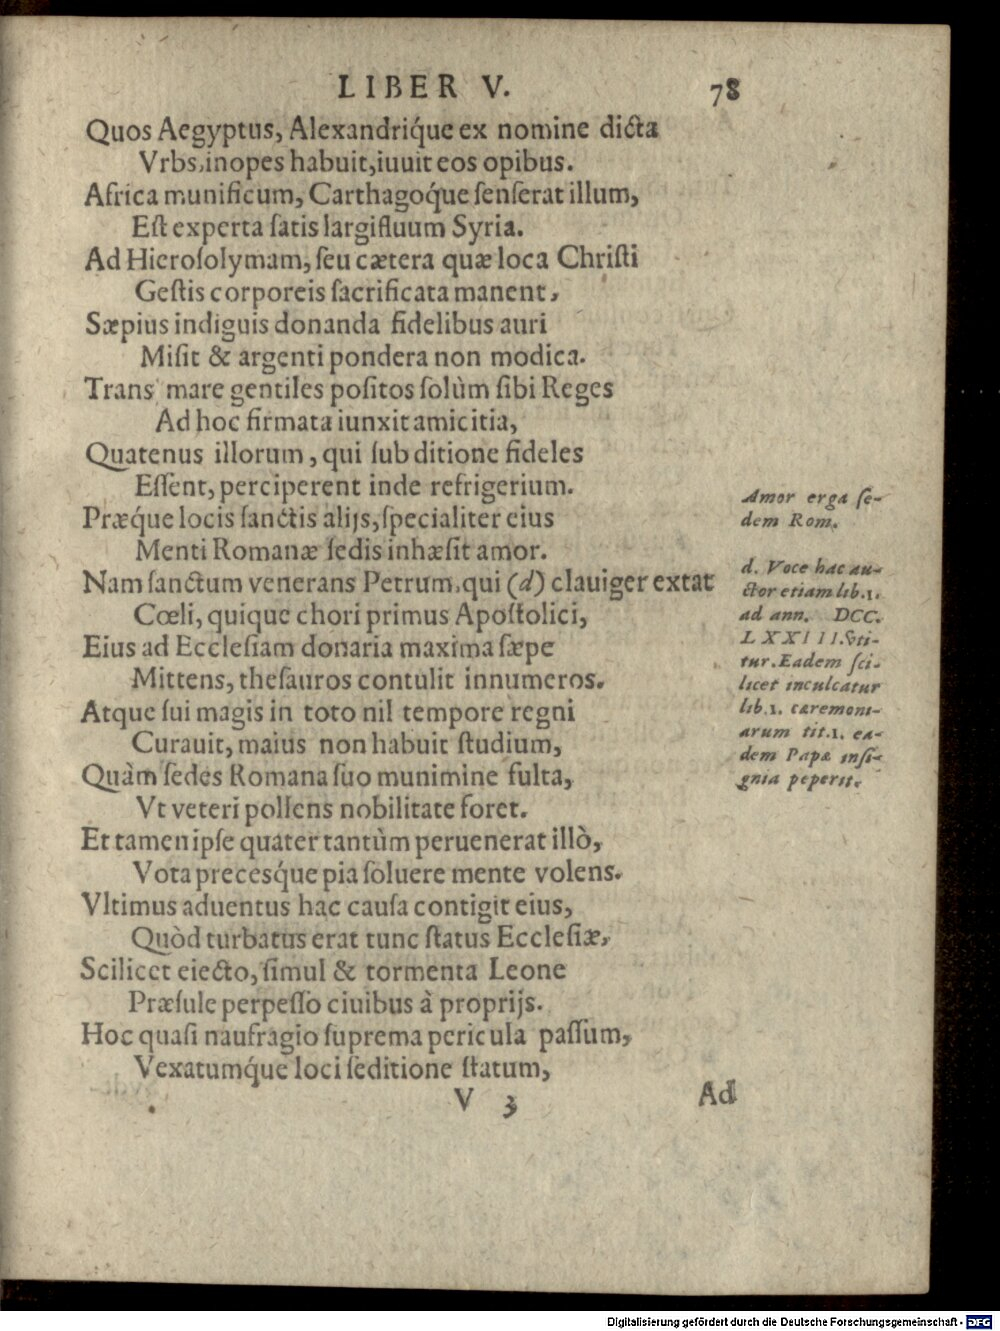 LIBER V. 78
Quos Aegyptus, Alexandriq́ue ex nomine dicta
Vrbs, inopes habuit, iuuit eos opibus.
Africa munificum, Carthagoq́ue ſenſerat illum,
Eſt experta ſatis largifluum Syria.
Ad Hieroſolymam, ſeu cætera quæ loca Chriſti
Geſtis corporeis ſacrificata manent,
Sæpius indiguis donanda fidelibus auri
Miſit & argenti pondera non modica.
Trans mare gentiles poſitos ſolùm ſibi Reges
Ad hoc firmata iunxit amicitia,
Quatenus illorum, qui ſub ditione fideles
Eſſent, perciperent inde refrigerium.
Præq́ue locis ſanctis alijs, ſpecialiter eius
Menti Romanæ ſedis inhæſit amor.
Nam ſanctum venerans Petrum, qui (d) clauiger extat
Cœli, quique chori primus Apoſtolici,
Eius ad Eccleſiam donaria maxima ſæpe
Mittens, theſauros contulit innumeros.
Atque ſui magis in toto nil tempore regni
Curauit, maius non habuit ſtudium,
Quàm ſedes Romana ſuo munimine fulta,
Vt veteri pollens nobilitate foret.
Et tamen ipſe quater tantùm peruenerat illò,
Vota precesq́ue pia ſoluere mente volens.
Vltimus aduentus hac cauſa contigit eius,
Quòd turbatus erat tunc ſtatus Eccleſiæ,
Scilicet eiecto, ſimul & tormenta Leone
Præſule perpeſſo ciuibus à proprijs.
Hoc quaſi naufragio ſuprema pericula paſſum,
Vexatumq́ue loci ſeditione ſtatum,
V 3 Ad
Amor erga ſe-
dem Rom.
d. Voce hac au-
ctor etiam lib. 1.
ad ann. DCC.
LXXIIII. vti-
tur. Eadem ſci-
licet inculcatur
lib. 1. cæremoni-
arum tit. 1. ea-
dem Papæ inſi-
gnia peperit.
Digitalisierung gefördert durch die Deutsche Forschungsgemeinschaft - DFG